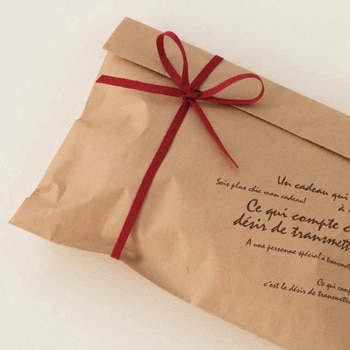 Un cadeau qui
Sois plus chic mon cadeau! à
Ce qui compte c
désir de transmett
A une personne spécial à transmet
Ce qui comp
c'est le désir de transmettre